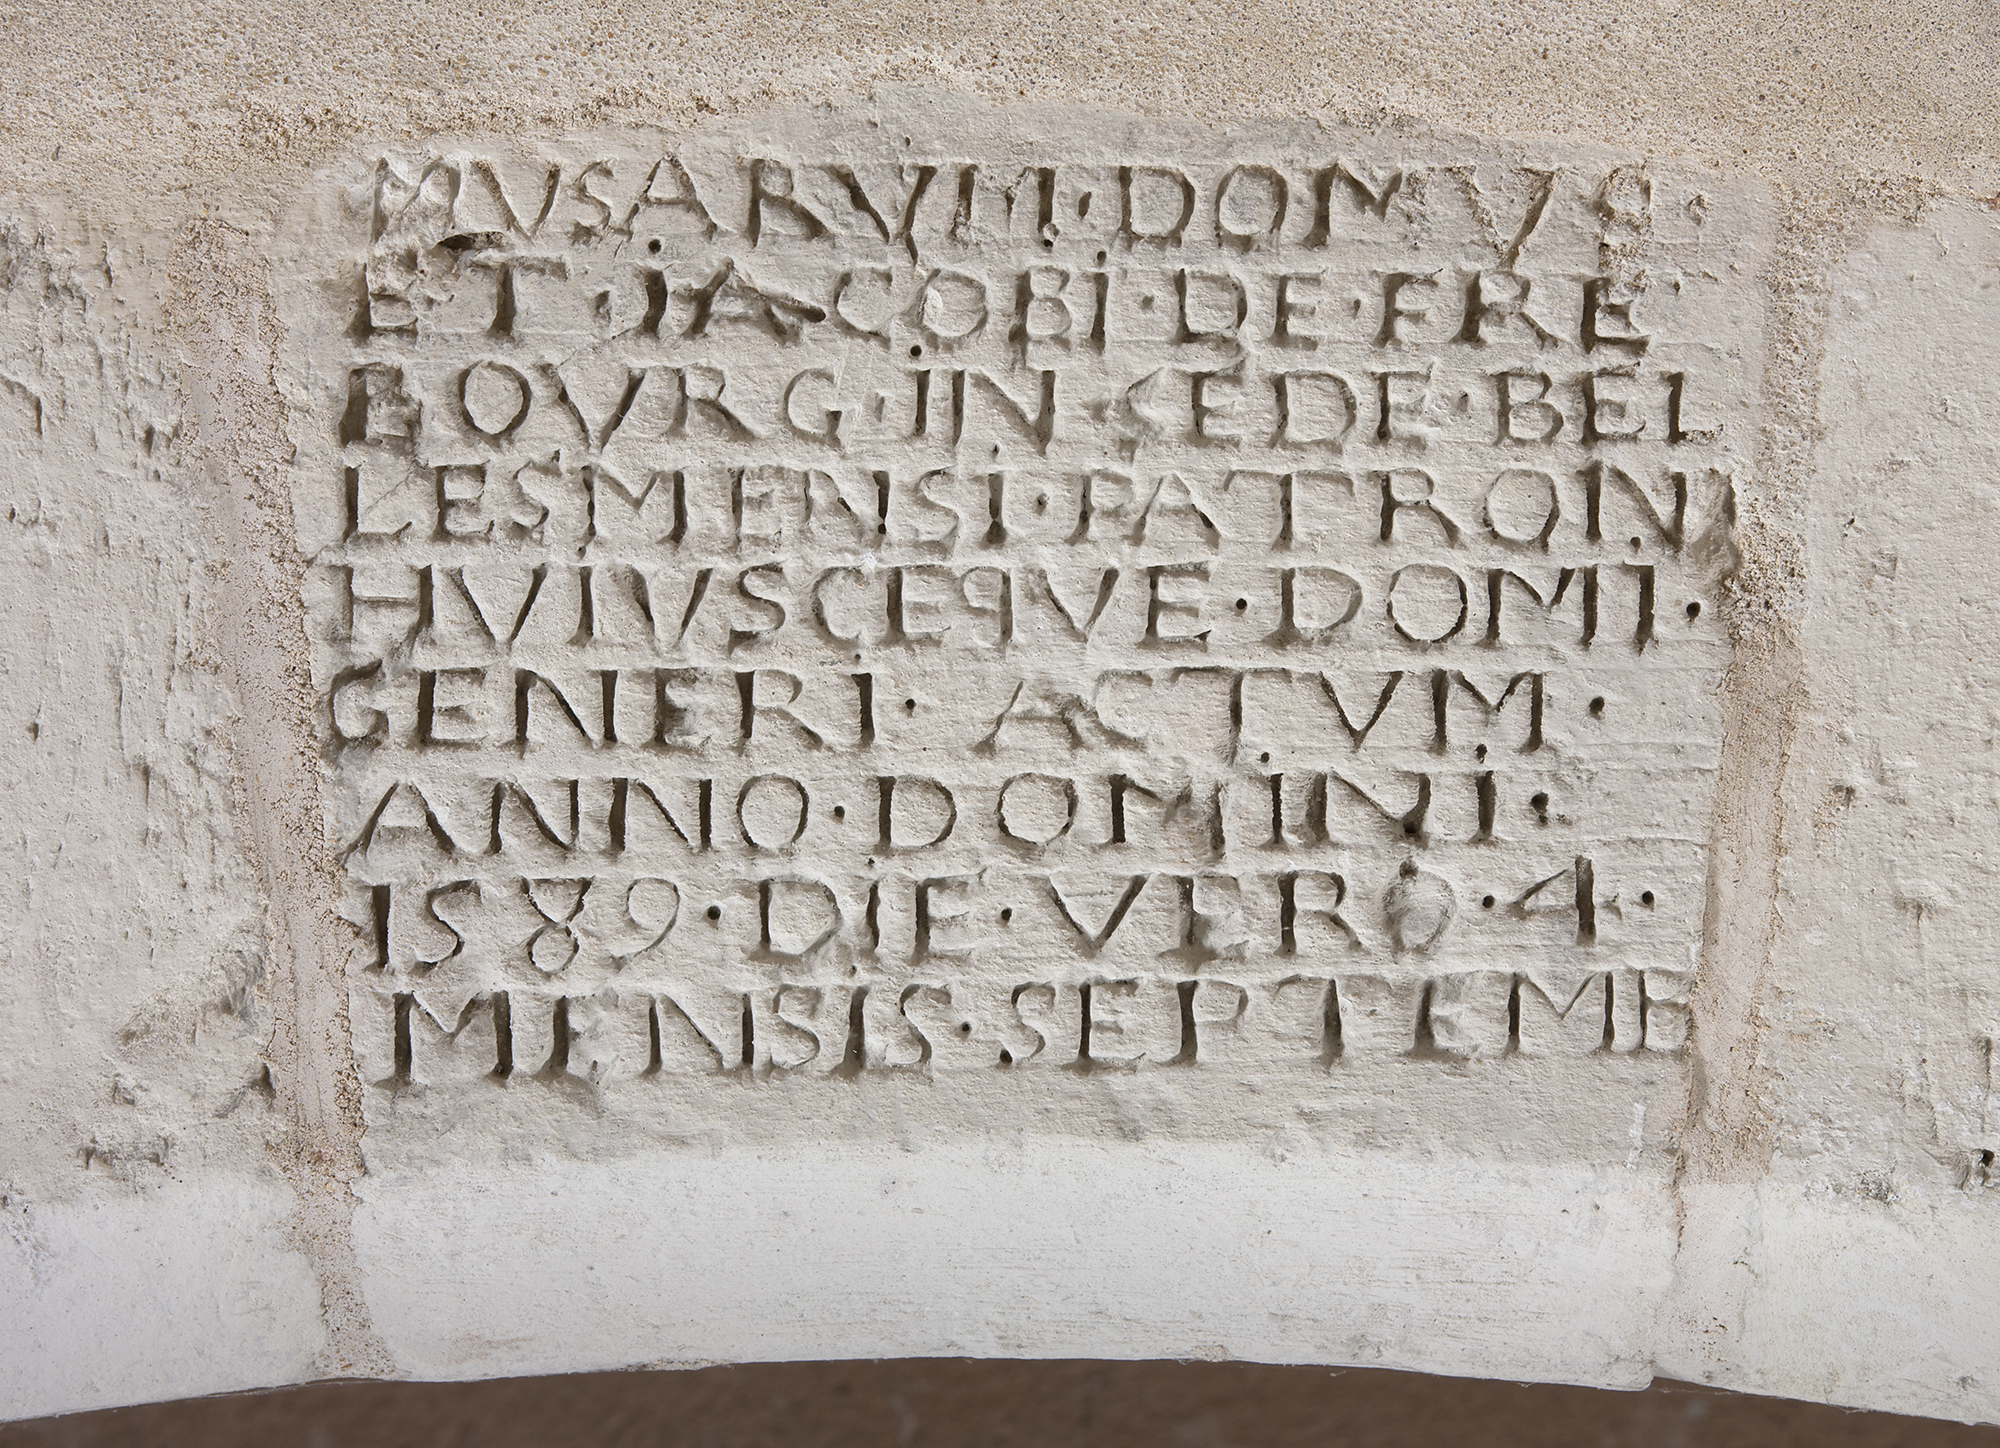 MUSARVM · DOMVS ·
ET · JACOBI · DE · FRE
BOVRG · IN SEDE · BEL
LESMENSI · PATRONI
HVIVSCEQVE · DOMII ·
GENERI · ACTVM ·
ANNO · DOMINI ·
1589 · DIE · VERO · 4 ·
MENSIS · SEPTEMB